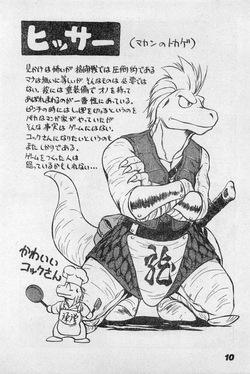 ヒッサー
(マカンのトカゲ)
見かけは怖いが 格闘戦では圧倒的である
マクは無いに等しいが そんなものは 必要では
ない。彼には 重装備で オノを持って
あばれまわるのが 一番 性にあっている。
ピンチの時には しっぽを切るというのを
バカなマンガ家が やっていたが
そんな事実は ゲームにはない。
コックさんになりたいというのも
よたばかりである。
ゲームをつくった人は
怒っているかもしれない…
かわいい
コックさん
龍
10